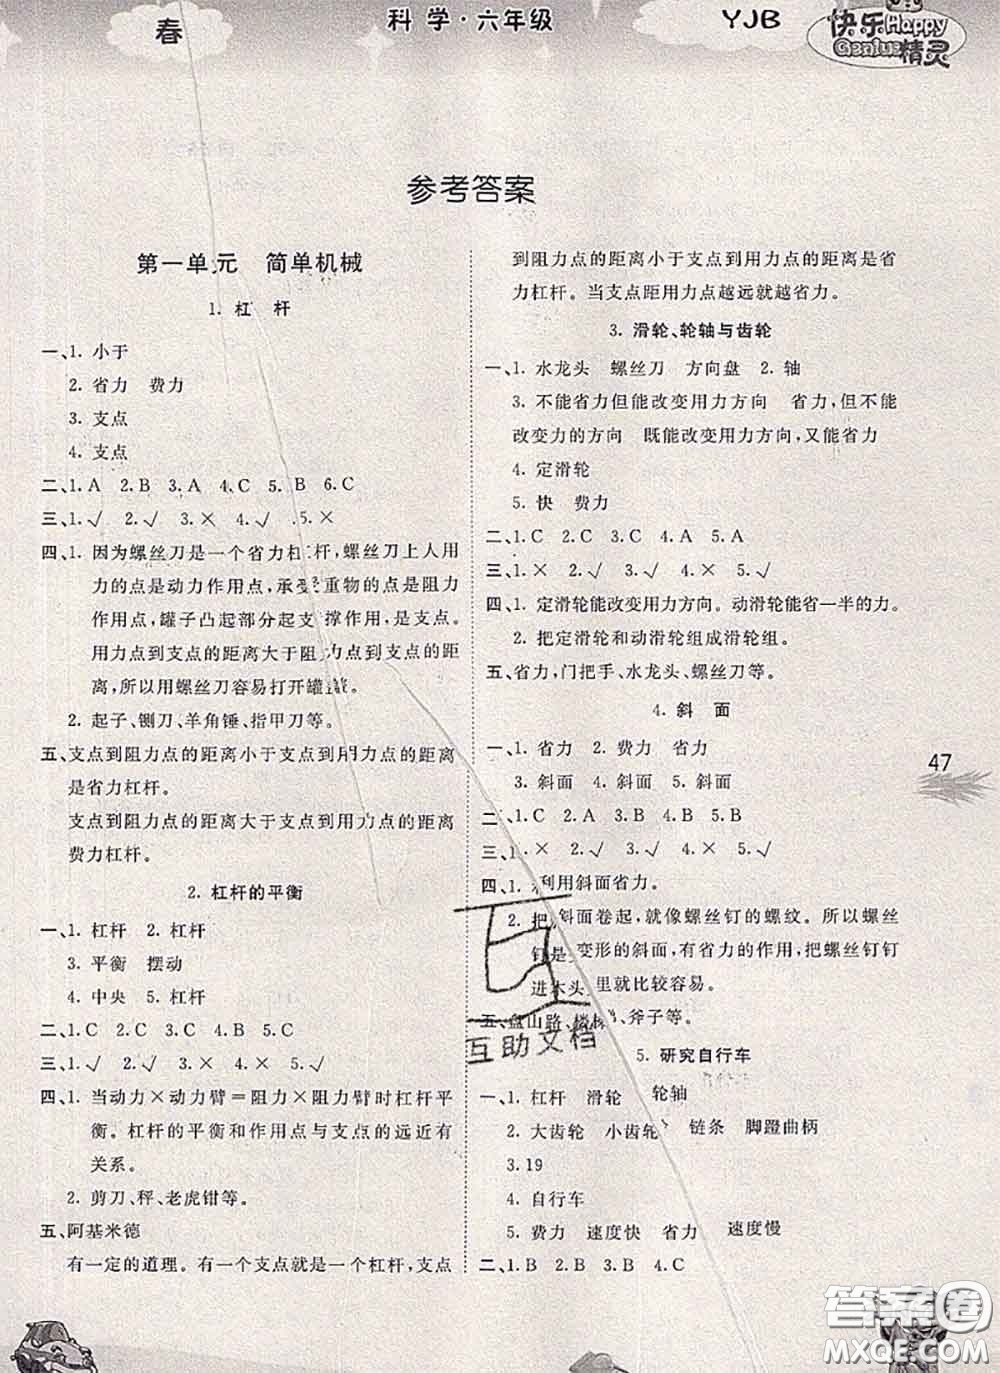 春
科学·六年级
YJB
快乐Happy
Genius精灵
参考答案
第一单元 简单机械
1. 杠 杆
一、1. 小于
2. 省力 费力
3. 支点
4. 支点
二、1. A 2. B 3. A 4. C 5. B 6. C
三、1. √ 2. √ 3. × 4. √ 5. ×
四、1. 因为螺丝刀是一个省力杠杆,螺丝刀上人用
力的点是动力作用点,承受重物的点是阻力
作用点,罐子凸起部分起支撑作用,是支点。
用力点到支点的距离大于阻力点到支点的距
离,所以用螺丝刀容易打开罐
2. 起子、铡刀、羊角锤、指甲刀等。
五、支点到阻力点的距离小于支点到用力点的距离
是省力杠杆。
支点到阻力点的距离大于支点到用力点的距离是
费力杠杆。
2. 杠杆的平衡
一、1. 杠杆 2. 杠杆
3. 平衡 摆动
4. 中央 5. 杠杆
二、1. C 2. C 3. C 4. B 5. C
三、1. √ 2. √ 3. × 4. √ 5. √
四、1. 当动力×动力臂=阻力×阻力臂时杠杆平
衡。杠杆的平衡和作用点与支点的远近有
关系。
2. 剪刀、秤、老虎钳等。
五、阿基米德
有一定的道理。有一个支点就会有杠杆,支点
到阻力点的距离小于支点到用力点的距离是省
力杠杆。当支点距用力点越远就越省力。
3. 滑轮、轮轴与齿轮
一、1. 水龙头 螺丝刀 方向盘 2. 轴
3. 不能省力但能改变用力方向 省力,但不能
改变力的方向 既能改变用力方向,又能省力
4. 定滑轮
5. 快 费力
二、1. C 2. C 3. A 4. A 5. A
三、1. × 2. √ 3. √ 4. × 5. √
四、1. 定滑轮能改变用力方向。动滑轮能省一半的力。
2. 把定滑轮和动滑轮组成滑轮组。
五、省力,门把手、水龙头、螺丝刀等。
4. 斜 面
一、1. 省力 2. 费力 省力
3. 斜面 4. 斜面 5. 斜面
二、1. C 2. A 3. B 4. B 5. B
三、1. × 2. √ 3. √ 4. × 5. √
四、1. 利用斜面省力。
2. 把斜面卷起,就像螺丝钉的螺纹。所以螺丝
钉是变形的斜面,有省力的作用,把螺丝钉钉
进木头里就比较容易。
五、盘山路、楼梯、斧子等。
5. 研究自行车
一、1. 杠杆 滑轮 轮轴
2. 大齿轮 小齿轮 链条 脚蹬曲柄
3. 19
4. 自行车
5. 费力 速度快 省力 速度慢
二、1. B 2. B 3. B 4. C
47
互助文档
答案圈
MXQE.COM